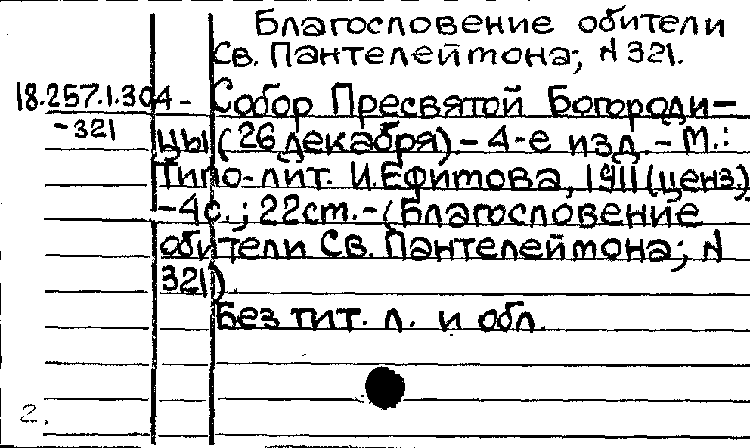 Благословение обители
Св. Пантелеймона; N 321.
18.257.1.304- Собор Пресвятой Богороди-
-321 цы (26 декабря).- 4-е изд.- М.:
Типо-лит. И.Ефимова, 1911 (ценз.)
-4с.; 22ст.-(Благословение
обители Св. Пантелеймона; N
321).
Без тит. л. и обл.
2.